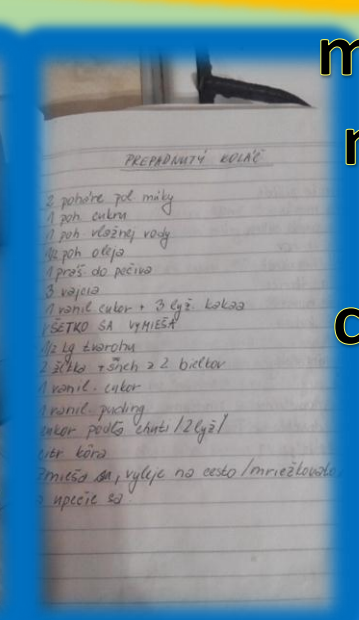 m
PREPADNUTÝ KOLÁČ
2 poháre pol. múky
1 poh cukru
1 poh vlažnej vody
1/2 poh oleja
1 práš. do pečiva
3 vajcia
1 vanil cukor + 3 lyž. kakaa
VŠETKO SA VYMIEŠA
1/2 kg tvarohu
2 žĺtka + sneh z 2 bielkov
1 vanil. cukor
1 vanil. puding
cukor podľa chuti /2 lyž/
citr kôra
zmieša sa, vyleje na cesto /mriežkovato
a upečie sa